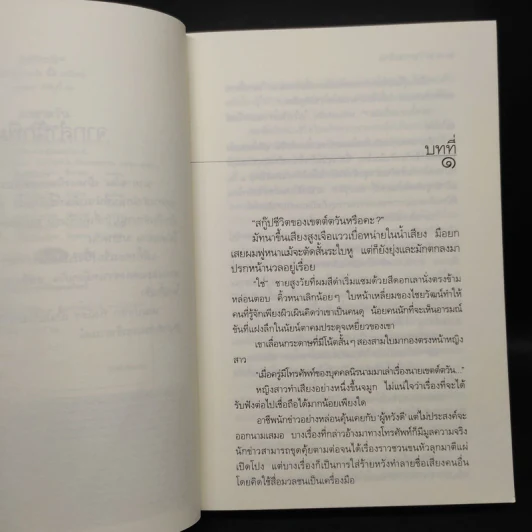 บทที่
๑
"สกู๊ปชีวิตของเขตต์ตวันหรือคะ?"
มัทนาขึ้นเสียงสูงเจือแววเบื่อหน่ายในน้ำเสียง มือยก
เสยผมฟูหนาแม้จะตัดสั้นระใบหู แต่ก็ยังยุ่งและมักตกลงมา
ปรกหน้านวลอยู่เรื่อย
"ใช่" ชายสูงวัยที่ผมสีดำเริ่มแซมด้วยสีดอกเลานั่งตรงข้าม
หล่อนตอบ คิ้วหนาเลิกน้อยๆ ใบหน้าเหลี่ยมของไชยวัฒน์ทำให้
คนที่รู้จักเพียงผิวเผินคิดว่าเขาเป็นคนดุ น้อยคนนักที่จะเห็นอารมณ์
ขันที่แฝงลึกในนัยน์ตาคมประดุจเหยี่ยวของเขา
เขาเลื่อนกระดาษที่มีโน้ตสั้นๆ สองสามใบมากองตรงหน้าหญิง
สาว
"เมื่อครู่มีโทรศัพท์ของบุคคลนิรนามมาเล่าเรื่องนายเขตต์ตวัน..."
หญิงสาวทำเสียงอย่างหนึ่งขึ้นจมูก ไม่แน่ใจว่าเรื่องที่จะได้
รับฟังต่อไปเชื่อถือได้มากน้อยเพียงใด
อาชีพนักข่าวอย่างหล่อนคุ้นเคยกับ 'ผู้หวังดี' แต่ไม่ประสงค์จะ
ออกนามเสมอ บางเรื่องที่กล่าวอ้างมาทางโทรศัพท์ก็มีมูลความจริง
นักข่าวสามารถขุดคุ้ยตามต่อจนได้เรื่องราวชวนขนหัวลุกมาตีแผ่
เปิดโปง แต่บางเรื่องก็เป็นการใส่ร้ายหวังทำลายชื่อเสียงคนอื่น
โดยคิดใช้สื่อมวลชนเป็นเครื่องมือ